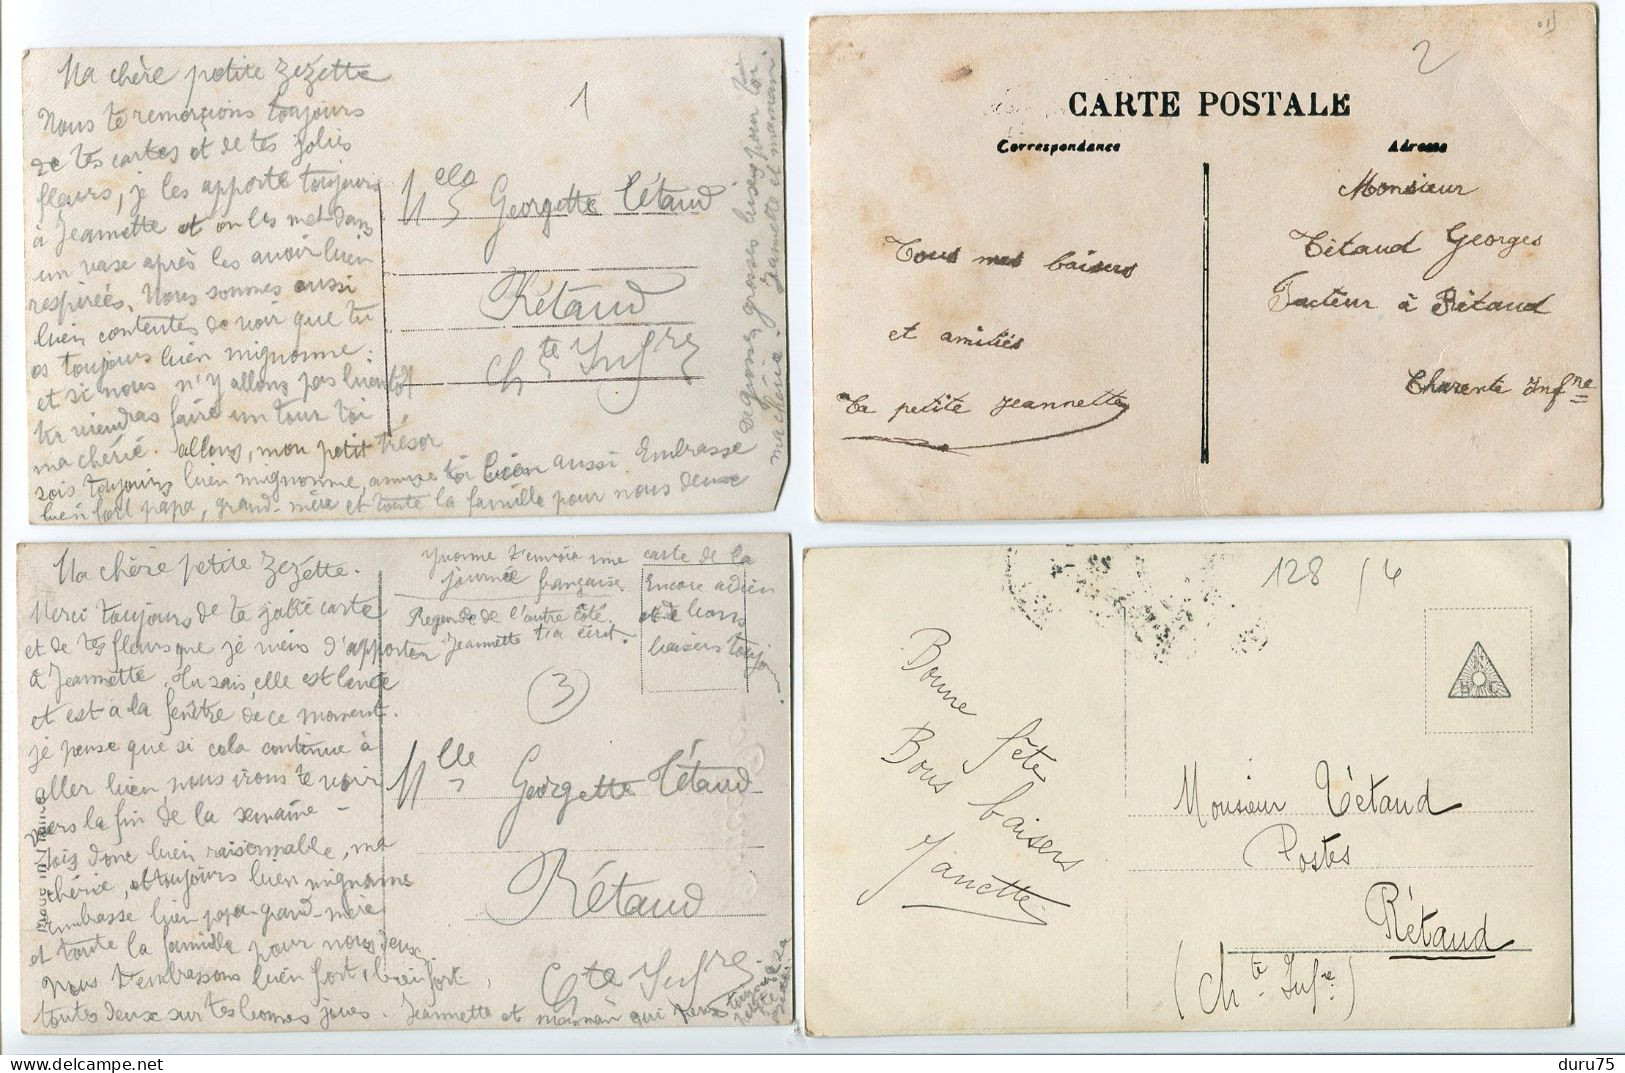 Ma chère petite Zézette
Nous te remerçions toujours
de tes cartes et de tes jolies
fleurs, je les apporte toujours
à Jeannette et on les met dans
un vase après les avoir bien
respirées. Nous sommes aussi
bien contentes de voir que tu
es toujours bien mignonne;
et si nous n'y allons pas bientôt
tu viendras faire un tour toi
ma chérie. allons, mon petit trésor
sois toujours bien mignonne, amuse toi bien aussi. Embrasse
bien fort papa, grand-mère et toute la famille pour nous deux
de grosses grosses bises pour toi
ma chérie. Jeannette et maman
1
Melle Georgette Tétaud
Rétaud
Chte Infre
2
CARTE POSTALE
Correspondance
Adresse
Tous mes baisers
et amitiés
Ta petite Jeannette
Monsieur
Tétaud Georges
Facteur à Rétaud
Charente Infre
Ma chère petite Zézette.
Merci toujours de ta jolie carte
et de tes fleurs que je viens d'apporter
à Jeannette. Tu sais, elle est levée
et est à la fenêtre de ce moment.
je pense que si cela continue à
aller bien nous irons te voir
vers la fin de la semaine -
sois donc bien raisonnable, ma
chérie, et toujours bien mignonne
Embrasse bien papa grand-mère
et toute la famille pour nous deux.
Nous t'embrassons bien fort, bien fort
toutes deux sur tes bonnes joues. Jeannette et maman qui
Yvonne t'envoie une carte de la
journée française.
Regarde de l'autre côté.
Jeannette t'a écrit.
Encore adieu
et de bons
baisers toujours
3
Mlle Georgette Tétaud
Rétaud
Chte Infre
128 / 4
Bonne fête
Bons baisers
Janette
Monsieur Tétaud
Postes
Rétaud
(Chte Infre)
delcampe.net
duru75